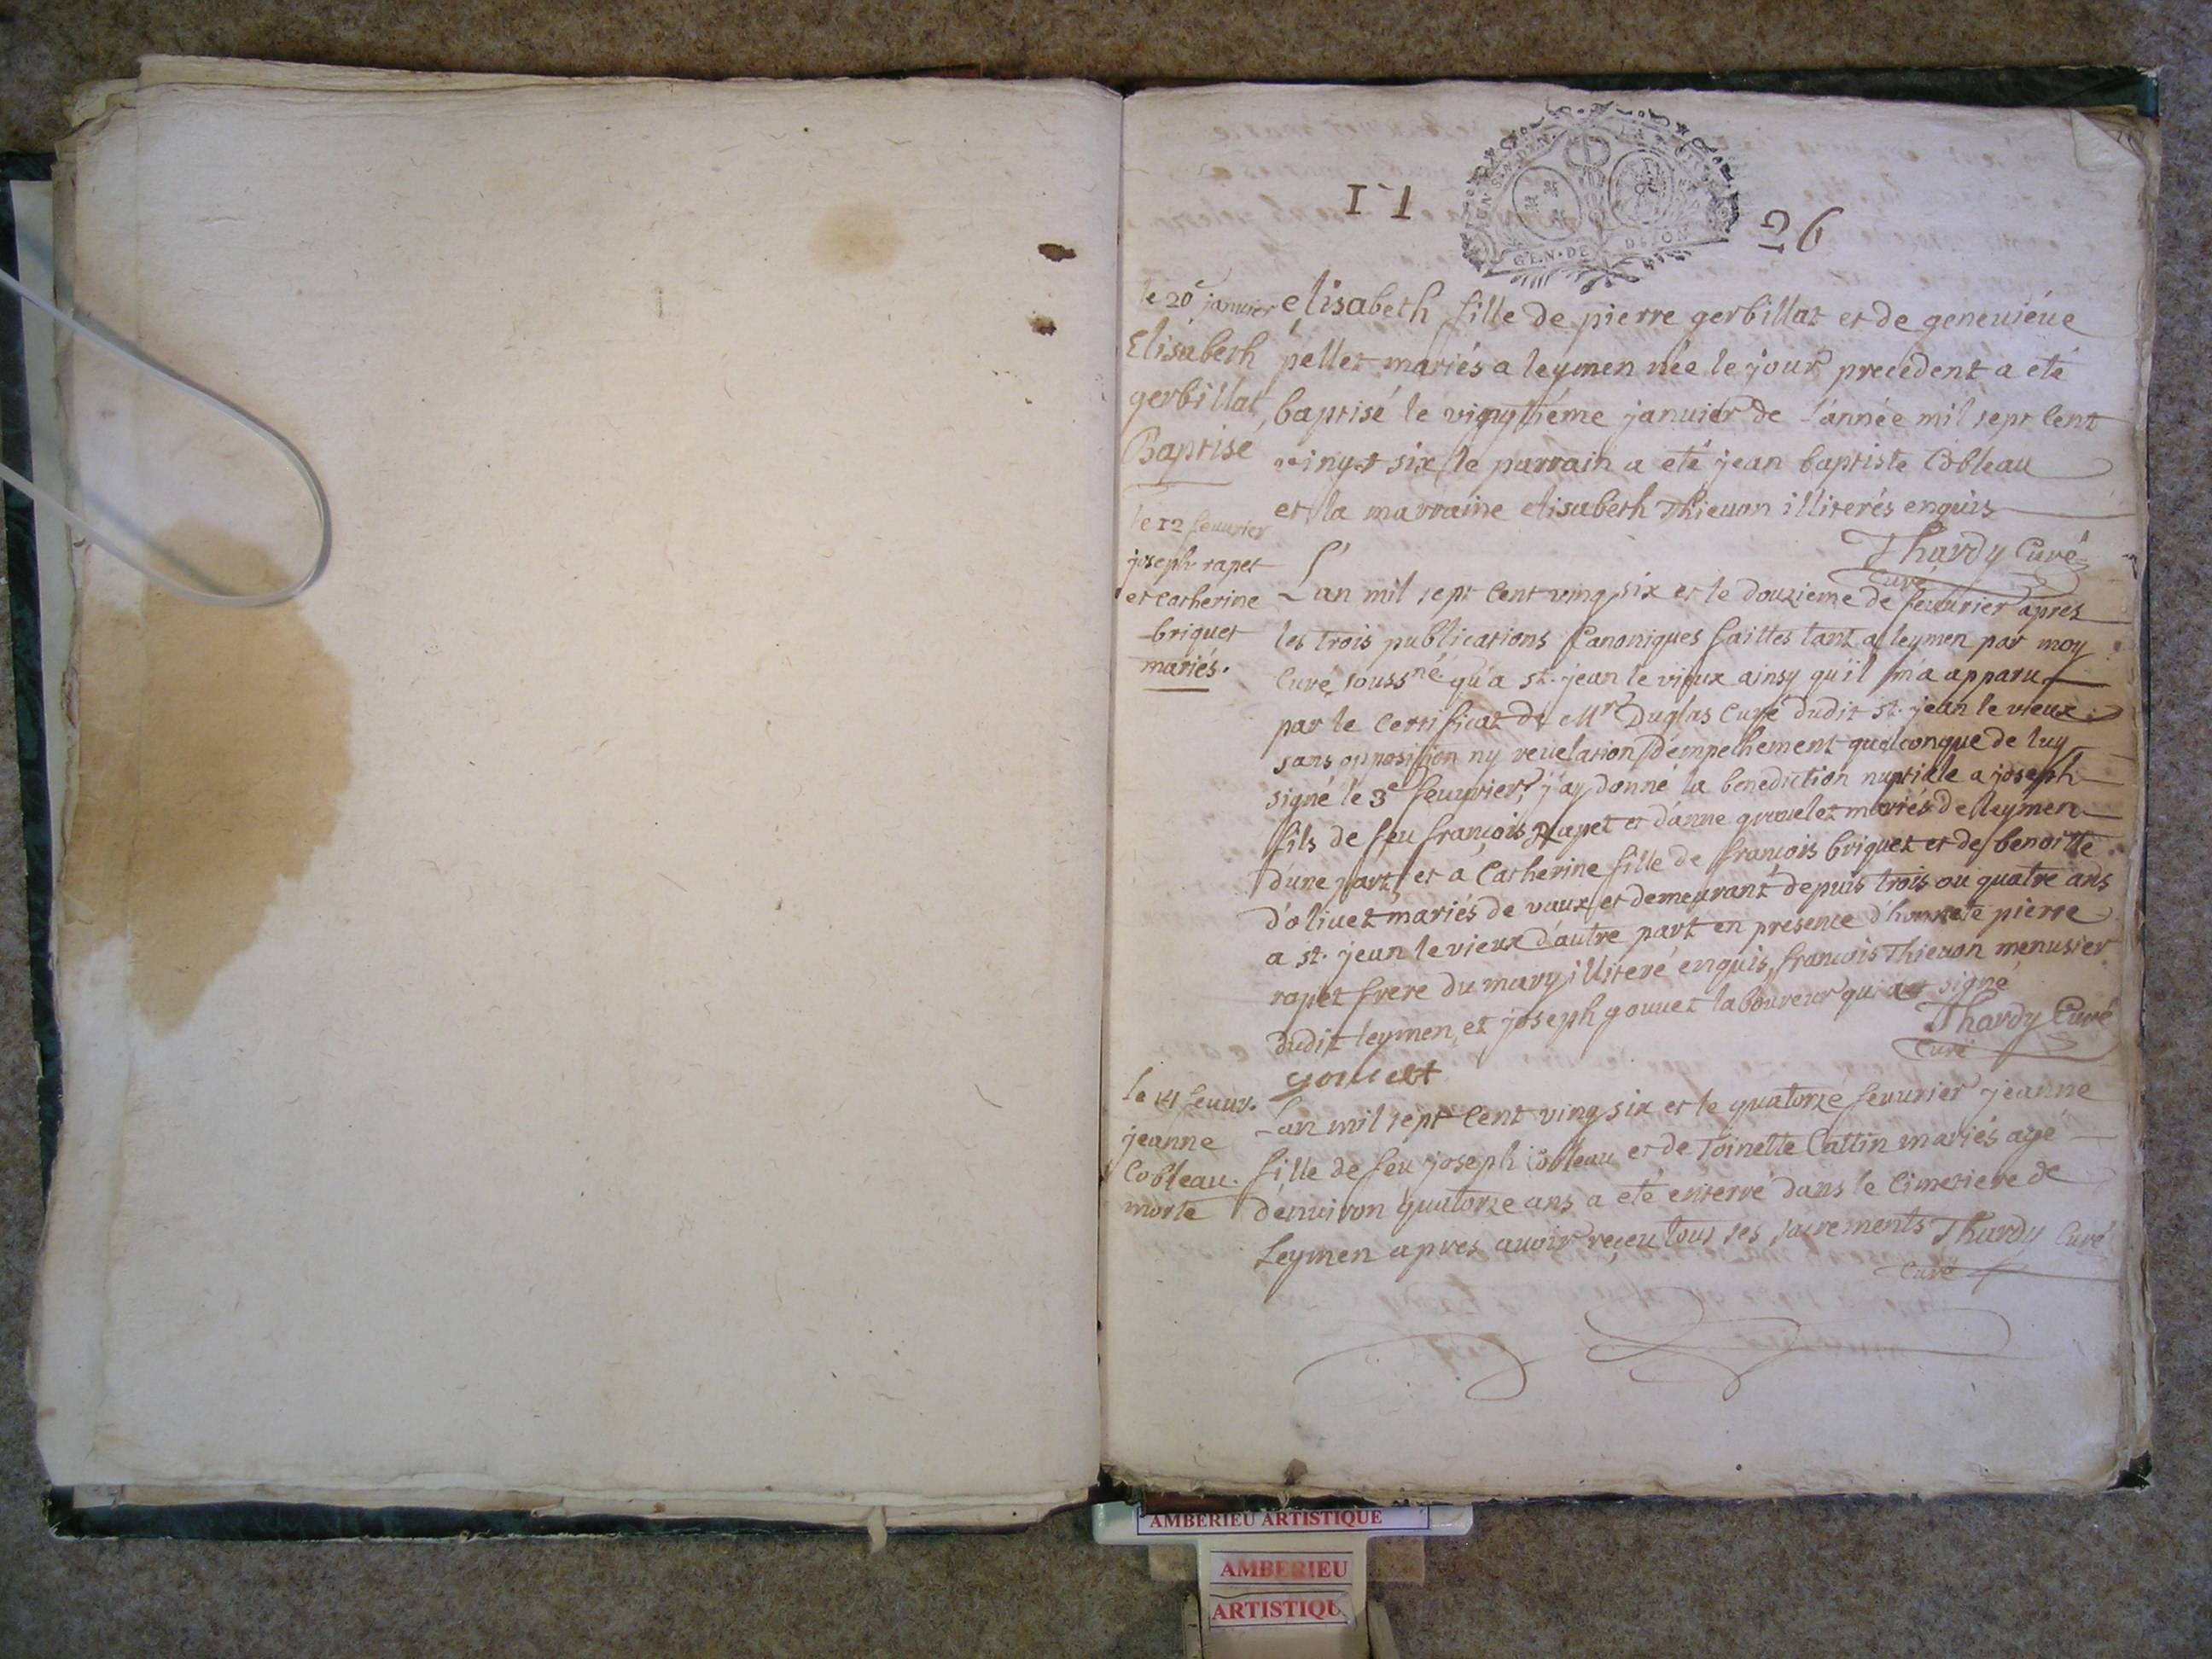 17
26
GEN·DE DIJON
le 20e janvier
Elisabeth
gerbillat,
Baptise
elisabeth fille de pierre gerbillat et de geneuiéue
pellet mariés a leymen née le jour precedent a eté
baptisé le vingtiéme januier de l'année mil sept Cent
vingt six le parrain a eté jean baptiste Cobleau
et la marraine elisabeth Thieuon illiterés enquis
Thardy Curé
Curé
le 12 feuurier
joseph rapet
et Catherine
briquet
mariés.
L'an mil sept Cent ving six et le douzieme de feuurier apres
les trois publications Canoniques faittes tant a leymen par moy
Curé soussné. qu'a st. jean le vieux ainsy qu'il m'a apparu
par le Certificat de Mr Duglas Curé dudit st. jean le vieux
sans opposition ny reuelation d'empechement quelconque de luy
signé le 3e feuurier, j'ay donné la benediction nuptiale a joseph
fils de feu françois Rapet et d'anne grauelet mariés de leymen
d'une part, et a Catherine fille de françois briquet et de benoitte
d'oliuet mariés de vaux et demeurant depuis trois ou quatre ans
a st. jean le vieux d'autre part en presence d'honneté pierre
rapet frere du mary illiteré enquis, francois Thieuon menusier
dudit leymen, et joseph gouuet laboureur qui a signé
Thardy Curé
Curé
gouuet
le 14 feuur.
jeanne
Cobleau.
morte
L'an mil sept Cent ving six et le quatorze feuurier jeanne
fille de feu joseph Cobleau et de Toinette Cattin mariés agé
d'enuiron quatorze ans a eté enterré dans le Cimetiere de
Leymen apres auoir reçeu tous ses sacrements Thardy Curé
Curé
AMBERIEU ARTISTIQUE
AMBERIEU
ARTISTIQU